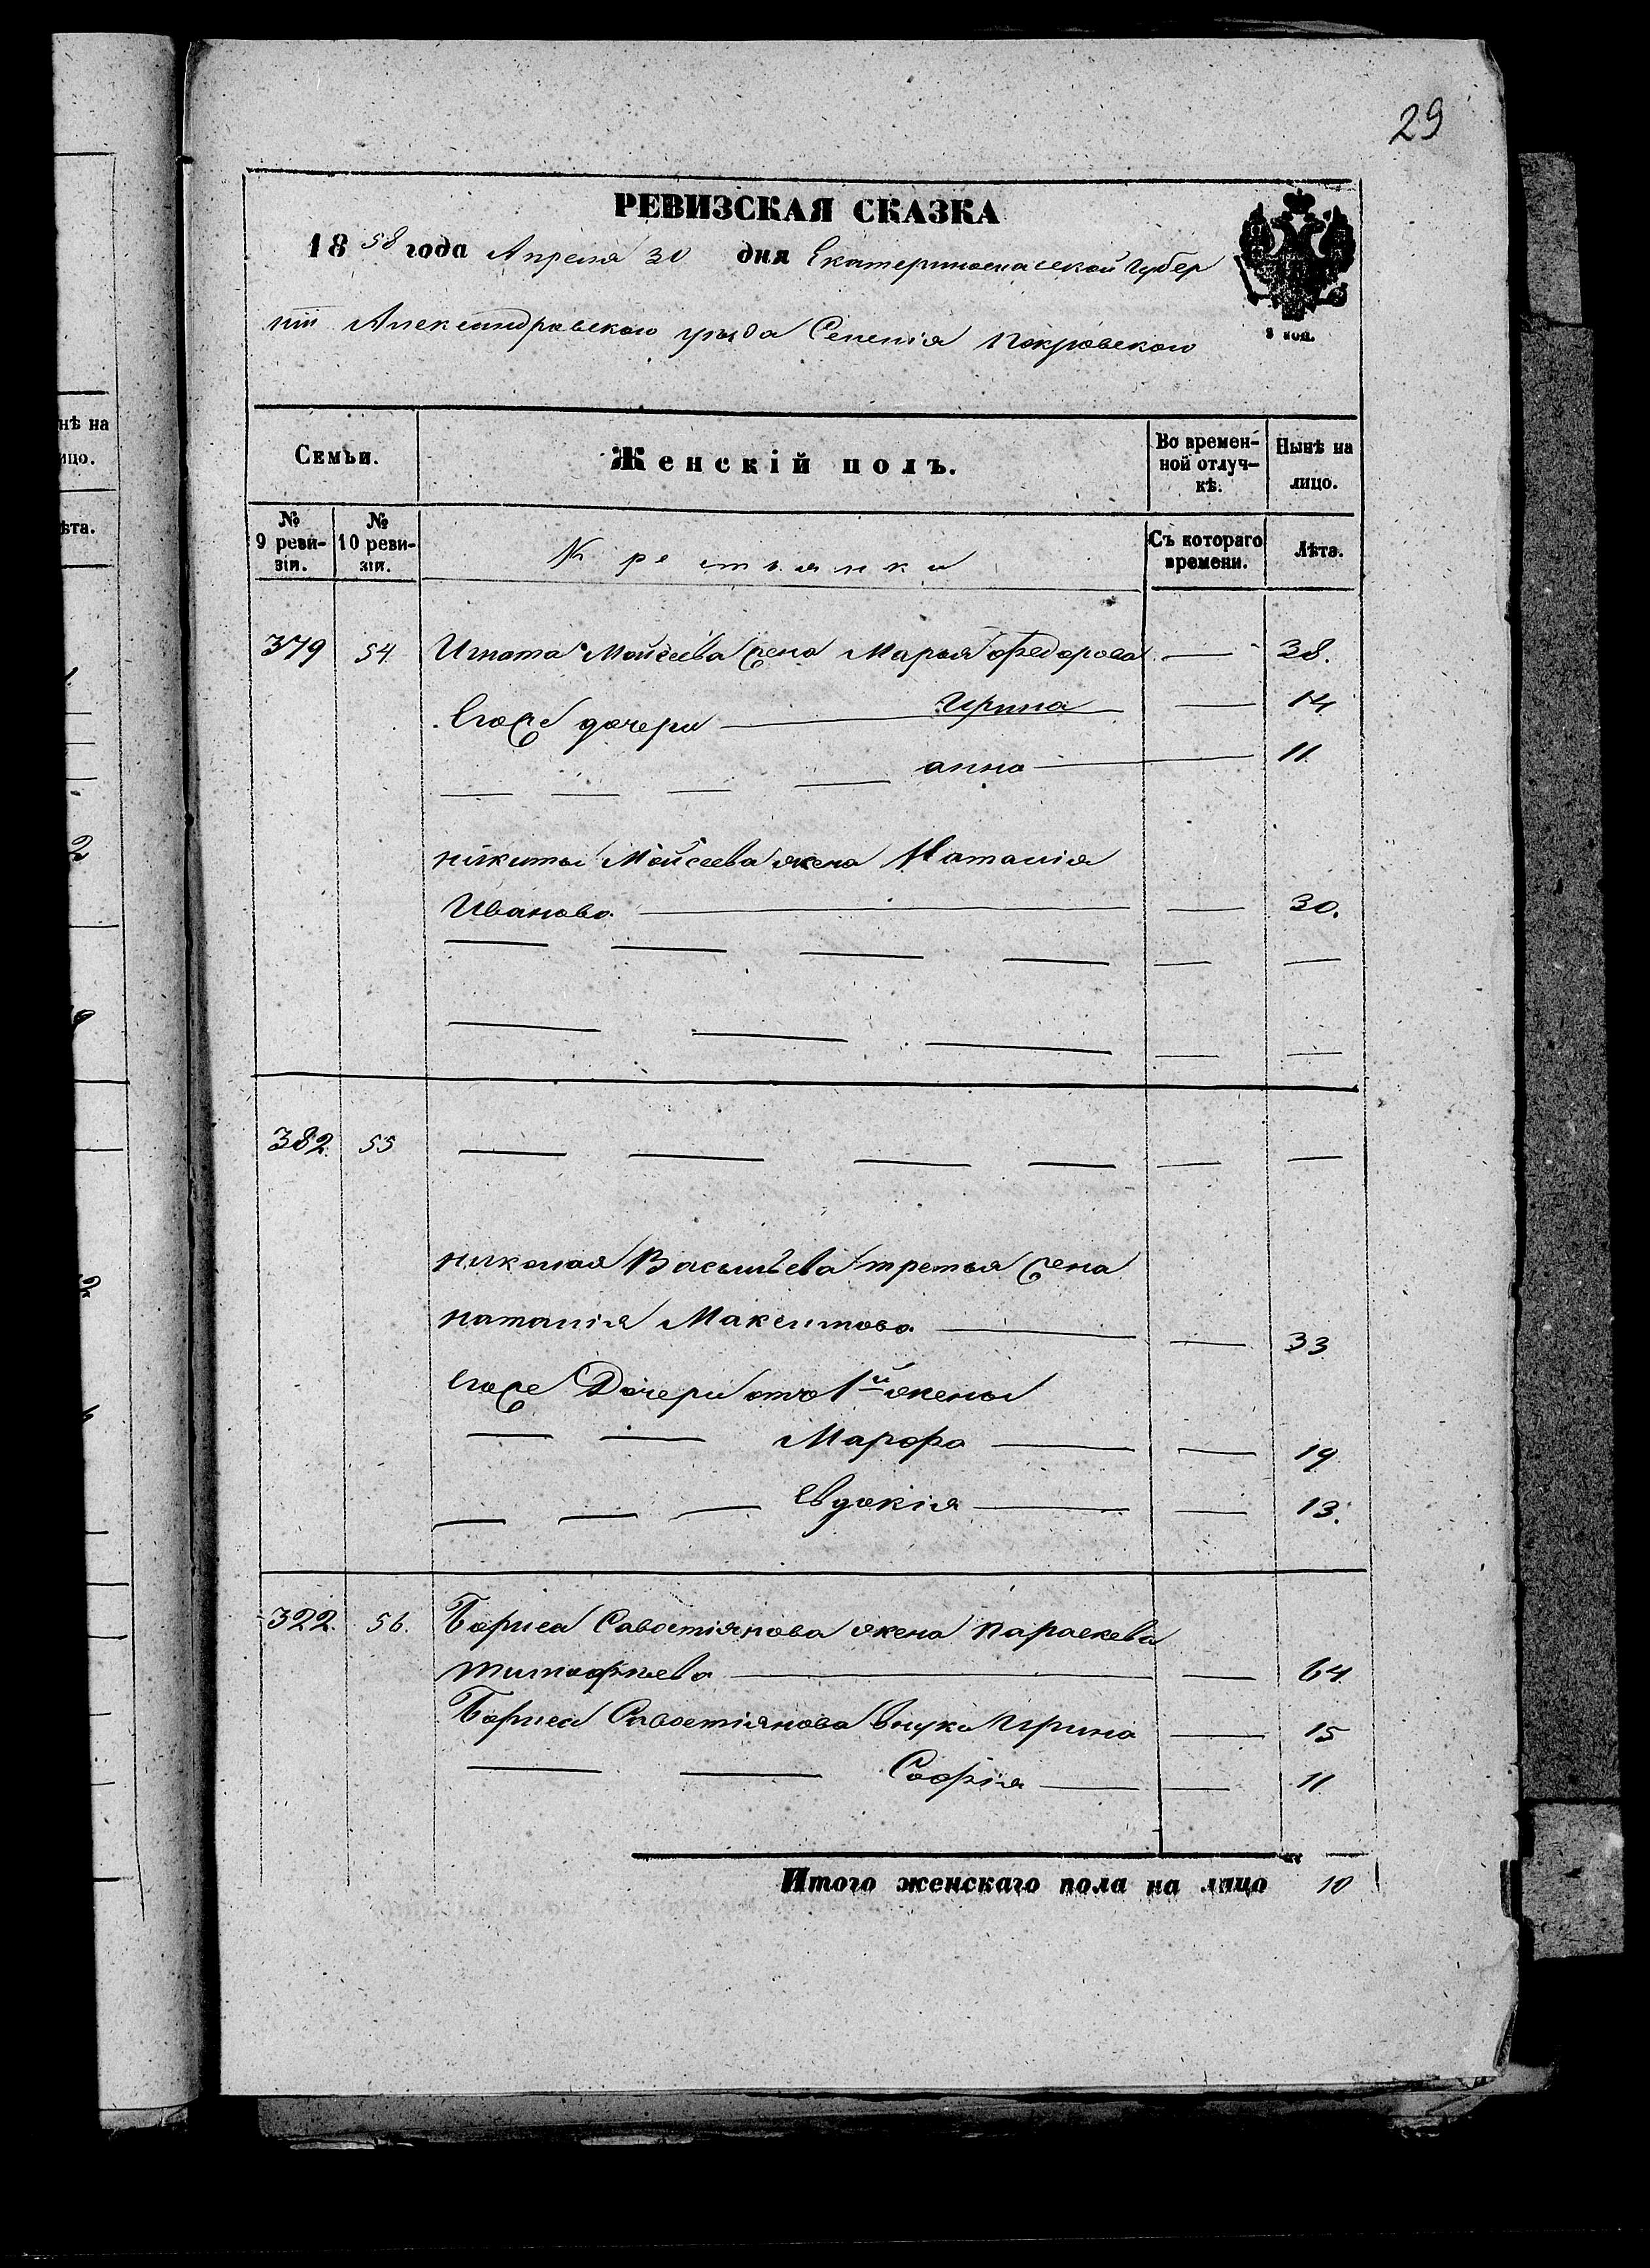 29
РЕВИЗСКАЯ СКАЗКА
1858 года Апреля 30 дня Екатеринослаской Губер
ніи Александровского уѣзда Селенія Покровского
3 коп.
Семьи.
Женскій полъ.
Во времен-
ной отлуч-
кѣ.
Нынѣ на
лицо.
№
9 реви-
зіи.
№
10 реви-
зіи.
Крестьянки
Съ котораго
времени.
Лѣта.
379 54 Игната Мойсеева жена Марья Федорова — 38.
Егоже дочери — Ирина — 14
анна — 11.
никиты Мойсеева жена Наталія
Иванова — 30.
382. 55
николая Васильева третья жена
наталія Максимова — 33
егоже Дочери отъ 1й жены
Марфа — 19
Евдокія — 13.
322. 56. Бориса Савостіянова жена параскева
тимофѣева — 64.
Бориса Савостіянова внуки Ирина — 15
Софія — 11
Итого женскаго пола на лицо 10
нѣ на
ицо.
ѣта.